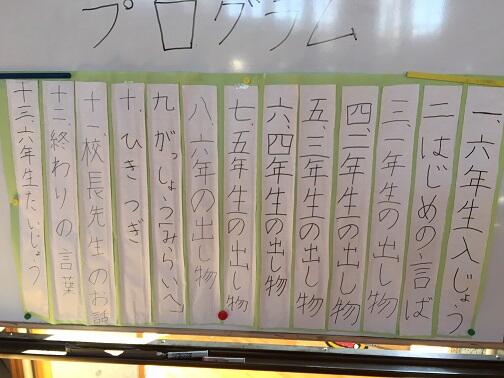 プログラム
一、六年生入じょう
二、はじめの言ば
三、一年生の出し物
四、二年生の出し物
五、三年生の出し物
六、四年生の出し物
七、五年生の出し物
八、六年の出し物
九、がっしょう「みらいへ」
十、ひきつぎ
十一、校長先生のお話
十二、終わりの言葉
十三、六年生たいじょう